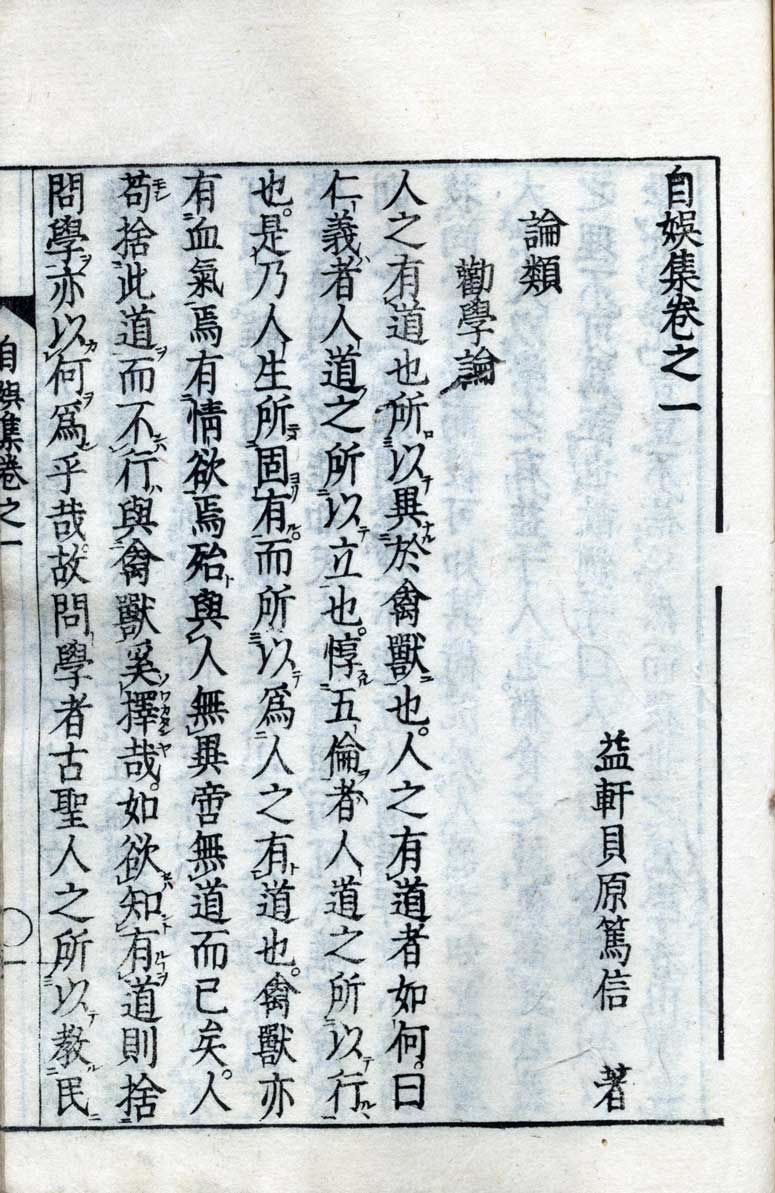 自娯集卷之一
益軒貝原篤信 著
論類
勸學論
人之有道也所以異於禽獸也。人之有道者如何。曰
仁義者人道之所以立也。惇五倫者人道之所以行
也。是乃人生所固有而所以爲人之有道也。禽獸亦
有血氣焉有情欲焉殆與人無異啻無道而已矣。人
苟捨此道而不行與禽獸奚擇哉。如欲知有道則捨
問學亦以何爲乎哉。故問學者古聖人之所以教民
自娯集卷之一
〇一